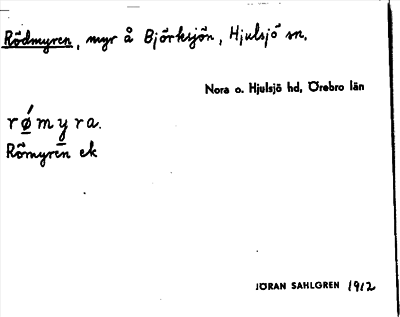 Rödmyren, myr å Björksjön, Hjulsjö sn.
Nora o. Hjulsjö hd, Örebro län
rǿmyra.
Römyren ek
JÖRAN SAHLGREN 1912